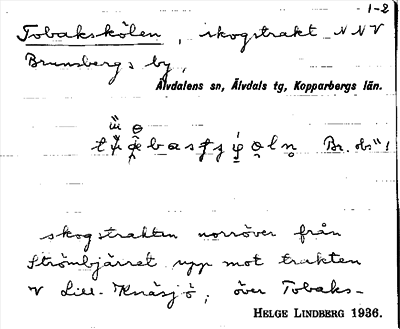 1-2
Tobakskölen, skogstrakt NNV
Brunsbergs by,
Älvdalens sn, Älvdals tg, Kopparbergs län.
Br. obs" !
skogstrakten norröver från
Strömbjärret upp mot trakten
V Lill-Knäsjö; över Tobaks-
HELGE LINDBERG 1936.